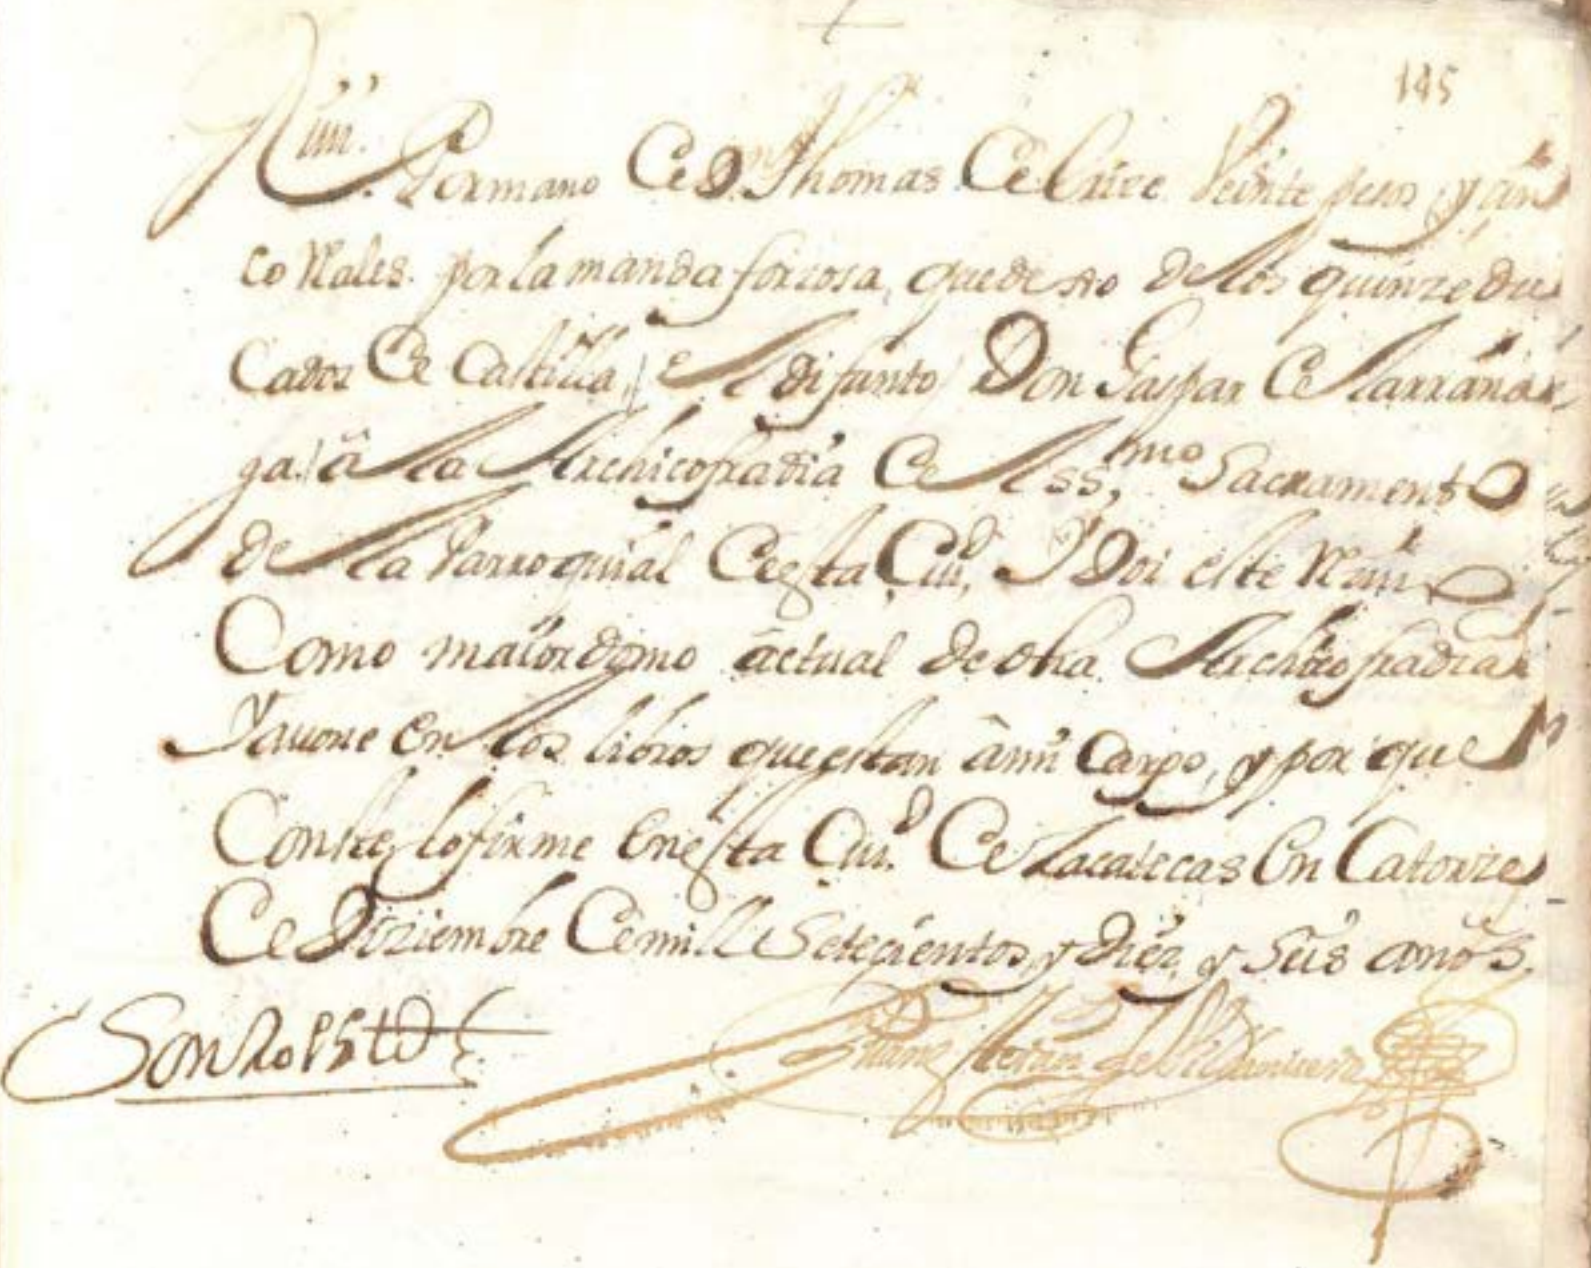 145
Riui. Por mano de Dn. Thomas de Oriue Veinte pesos y sin
co Rales. por la manda forsosa, que de xo de los quinze du
cados de Castilla, el difunto Don Gaspar de Larrana
ga. â la Archicofradia de el SSmo. Sacramento
de la Parroquial de esta Ciud. Y Doi este Reciuo
Como maiordomo actual de dha. Archicofradia
Y auone en los libros que estan â mi cargo, y por que
Conste, lo firme en esta Ciud. de Zacatecas en Catorze
de Diziembre de mill Setesientos, y Diez, y Seis años.
Son 20 ps 5 td